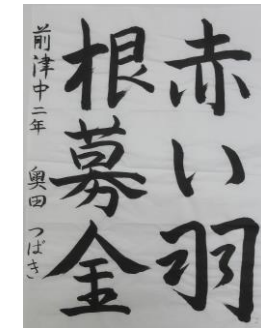 赤い羽
根募金
前津中二年 奥田 つばき